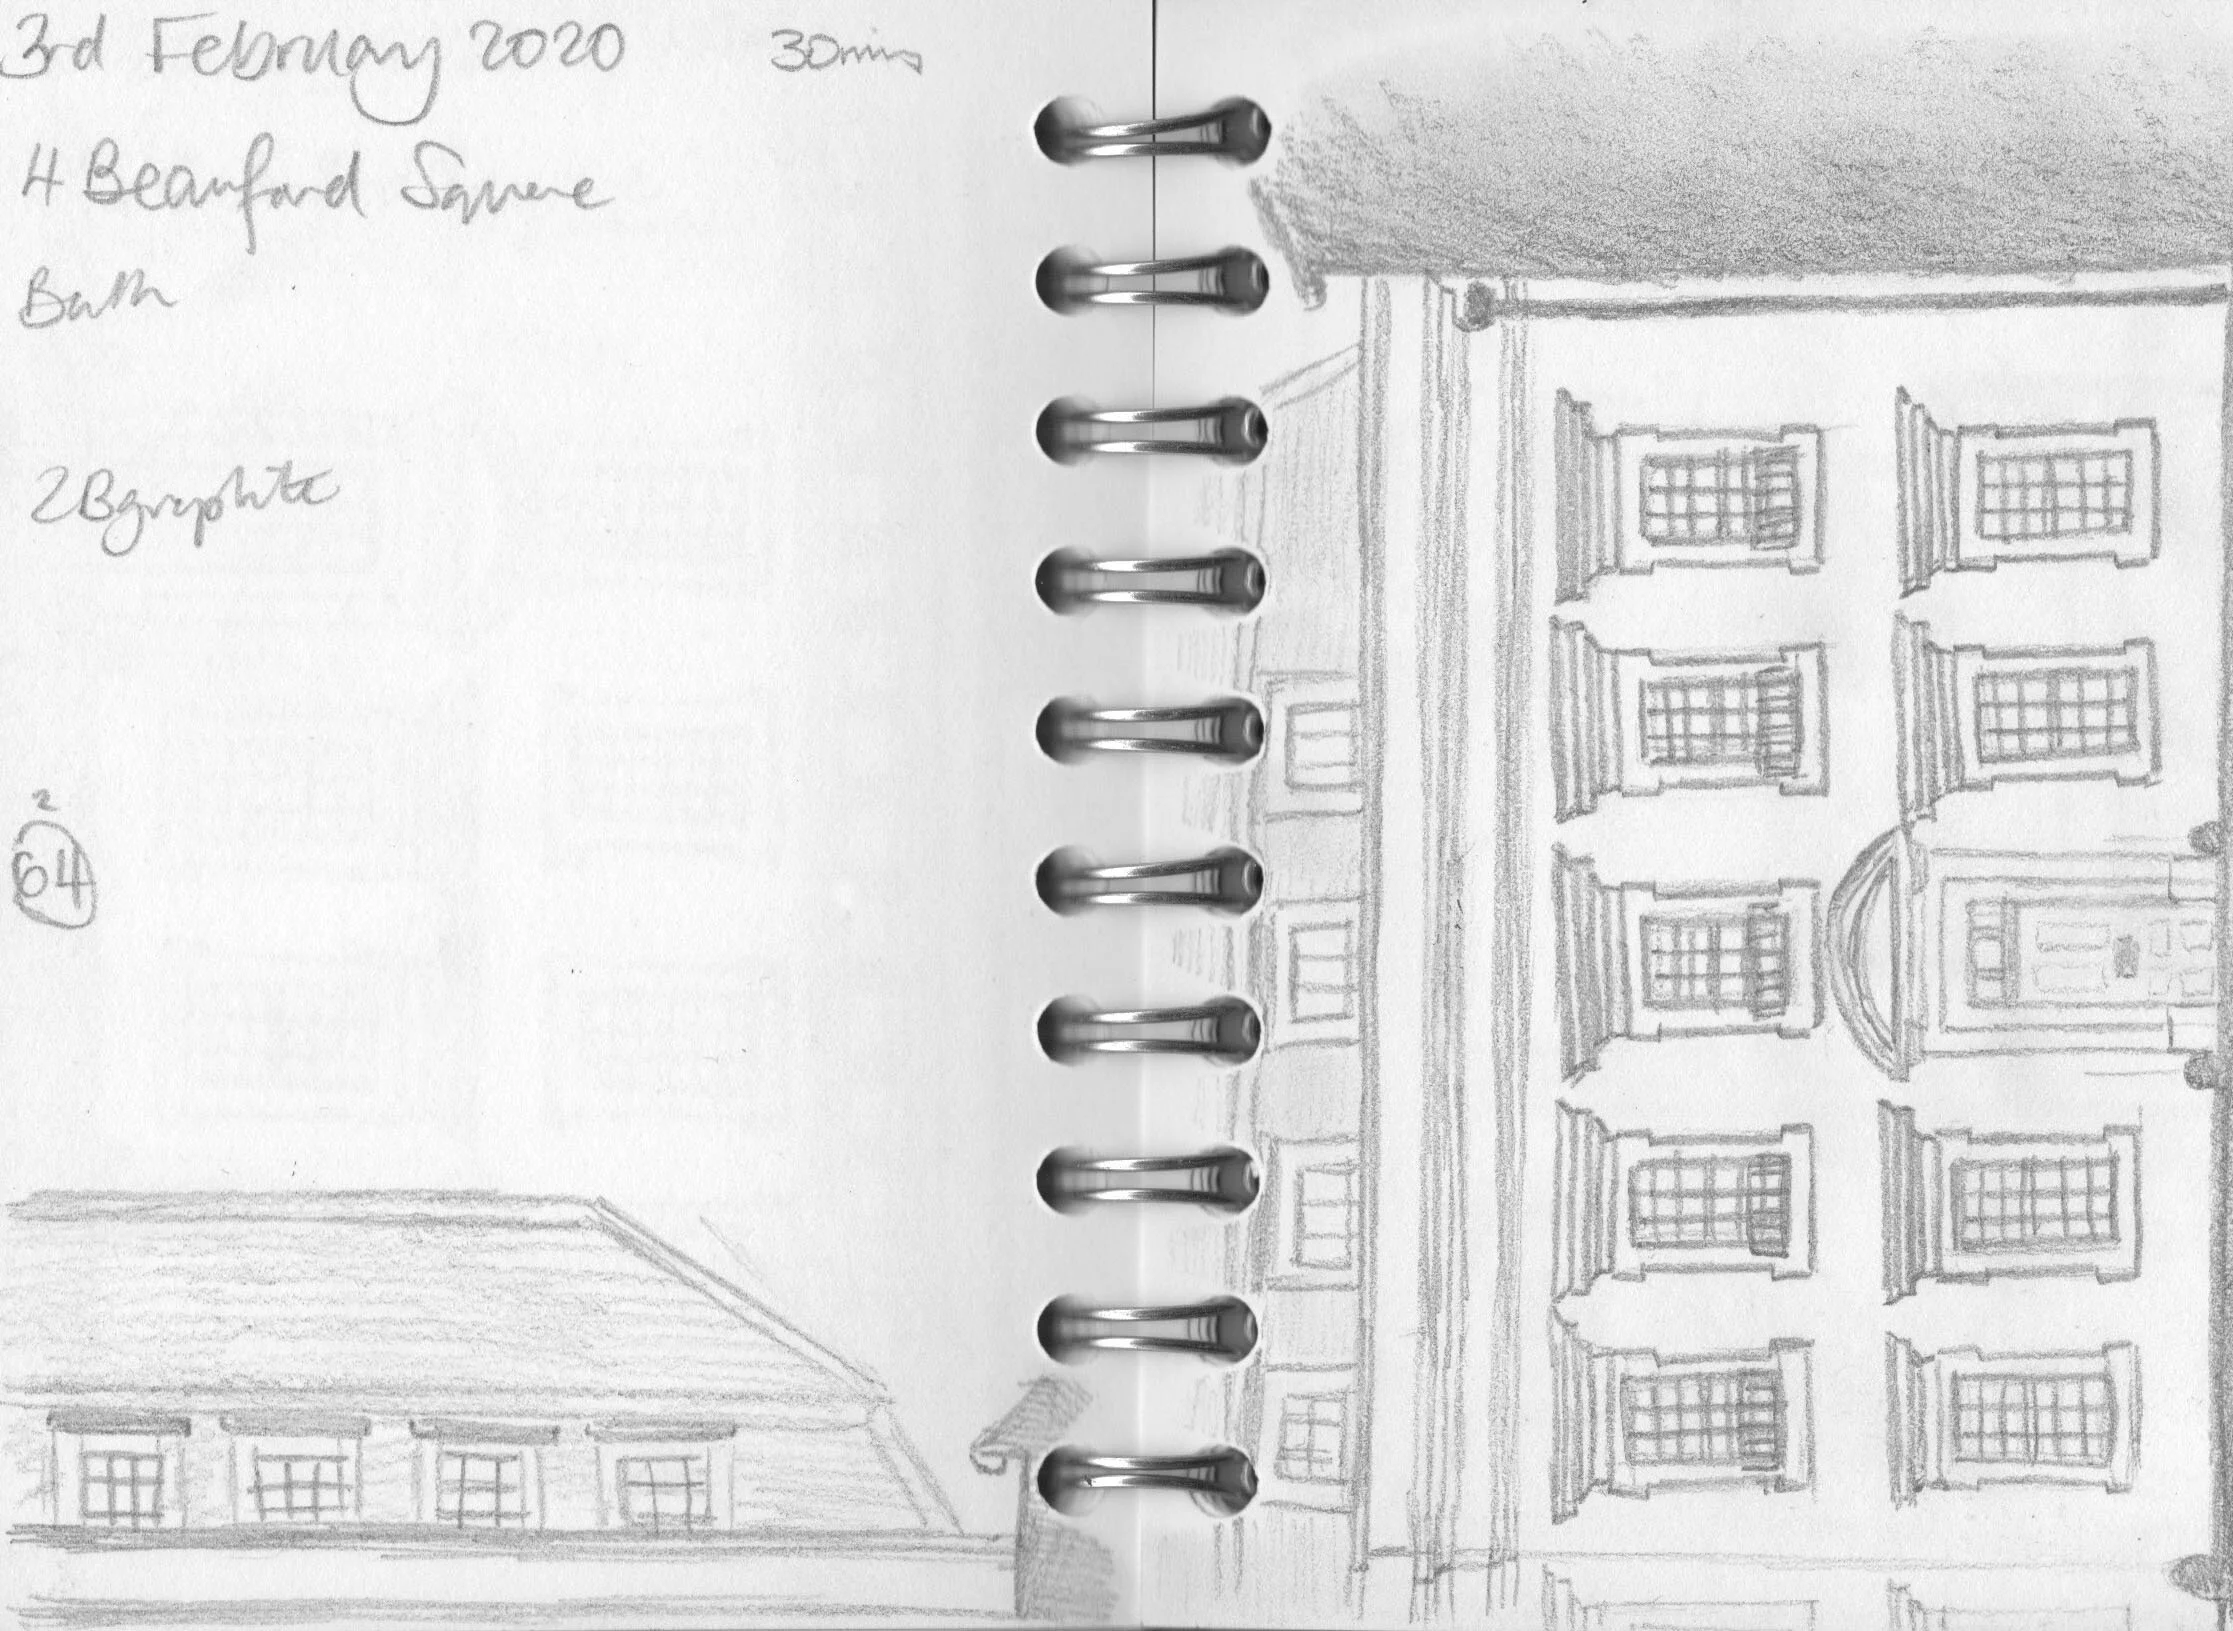 3rd February 2020 30mins
4 Beauford Square
Bath
2B graphite
2
64